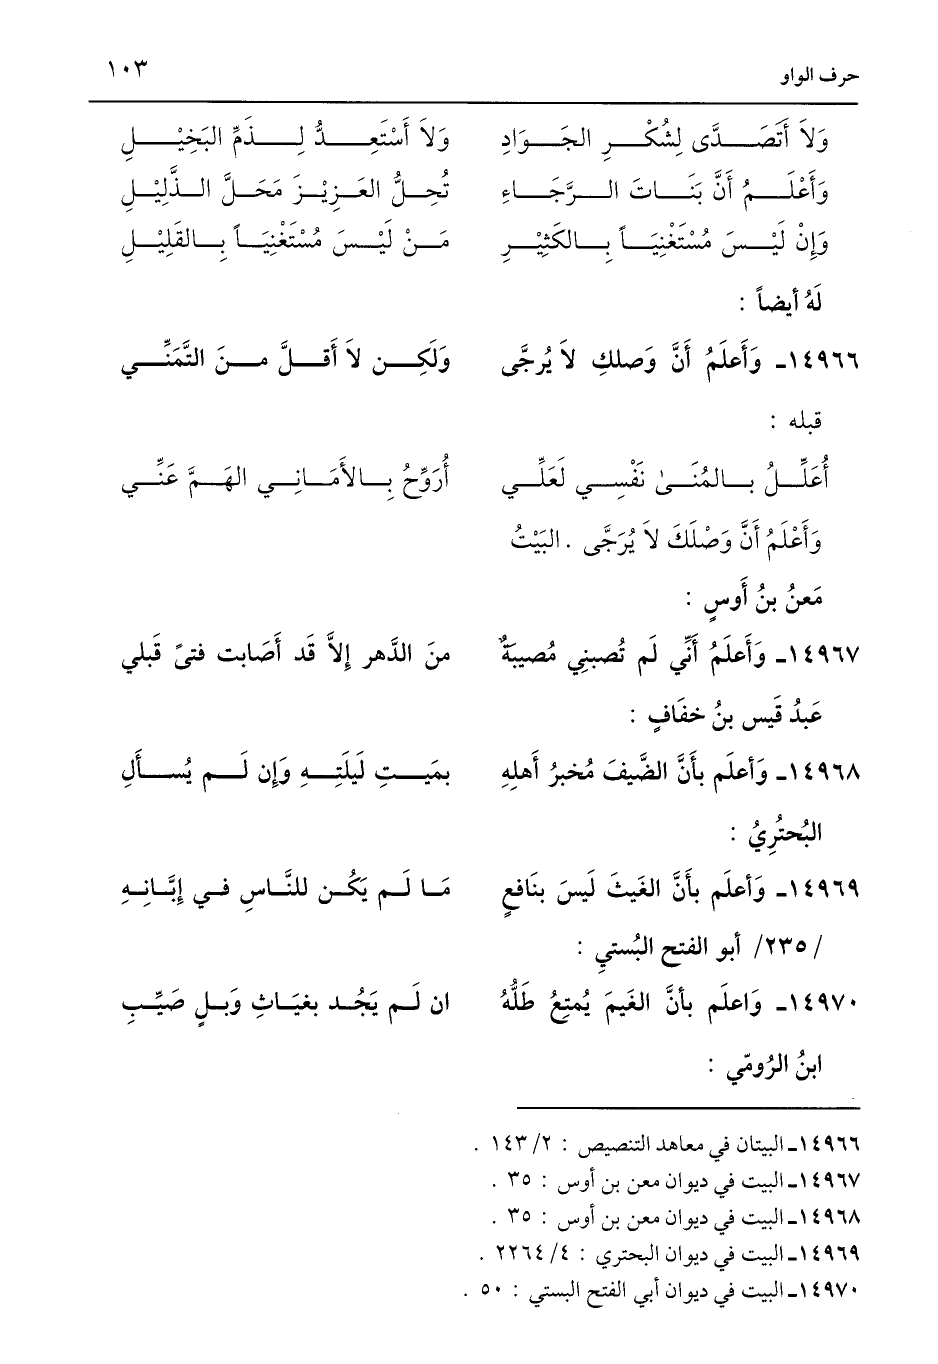 حرف الواو ١٠٣
وَلاَ أَتَصَدَّى لِشُكْرِ الجَوَادِ وَلاَ أَسْتَعِدُّ لِذَمِّ البَخِيْلِ
وَأَعْلَمُ أَنَّ بَنَاتَ الرَّجَاءِ تُحِلُّ العَزِيْزَ مَحَلَّ الذَّلِيْلِ
وَإِنْ لَيْسَ مُسْتَغْنِيَاً بِالكَثِيْرِ مَنْ لَيْسَ مُسْتَغْنِيَاً بِالقَلِيْلِ
لَهُ أيضاً :
١٤٩٦٦ـ وَأَعلَمُ أَنَّ وَصلكِ لاَ يُرجَّى وَلَكِن لاَ أَقلَّ منَ التَّمَنِّي
قبله :
أُعَلِّلُ بِالمُنَىٰ نَفْسِي لَعَلِّي أُرَوِّحُ بِالأَمَانِي الهَمَّ عَنِّي
وَأَعْلَمُ أَنَّ وَصْلَكَ لاَ يُرَجَّى . البَيْتُ
مَعنُ بنُ أَوسٍ :
١٤٩٦٧ـ وَأَعلَمُ أَنِّي لَم تُصبنِي مُصيبَةٌ منَ الدَّهر إِلاَّ قَد أَصَابت فتىً قَبلي
عَبدُ قَيس بنُ خفَافٍ :
١٤٩٦٨ـ وَأعلَم بأَنَّ الضَّيفَ مُخبرُ أَهلِهِ بمَيتِ لَيلَتِهِ وَإِن لَم يُسأَلِ
البُحتُرِيُ :
١٤٩٦٩ـ وَأعلَم بأَنَّ الغَيثَ لَيسَ بنَافعٍ مَا لَم يَكُن للنَّاسِ في إبَّانِهِ
/ ٢٣٥/ أبو الفتح البُستيِ :
١٤٩٧٠ـ وَاعلَم بأنَّ الغَيمَ يُمتِعُ طَلُّهُ ان لَم يَجُد بغيَاثِ وَبلٍ صَيِّبِ
ابنُ الرُوميّ :
١٤٩٦٦ـ البيتان في معاهد التنصيص : ١٤٣/٢ .
١٤٩٦٧ـ البيت في ديوان معن بن أوس : ٣٥ .
١٤٩٦٨ـ البيت في ديوان معن بن أوس : ٣٥ .
١٤٩٦٩ـ البيت في ديوان البحتري : ٢٢٦٤/٤ .
١٤٩٧٠ـ البيت في ديوان أبي الفتح البستي : ٥٠ .